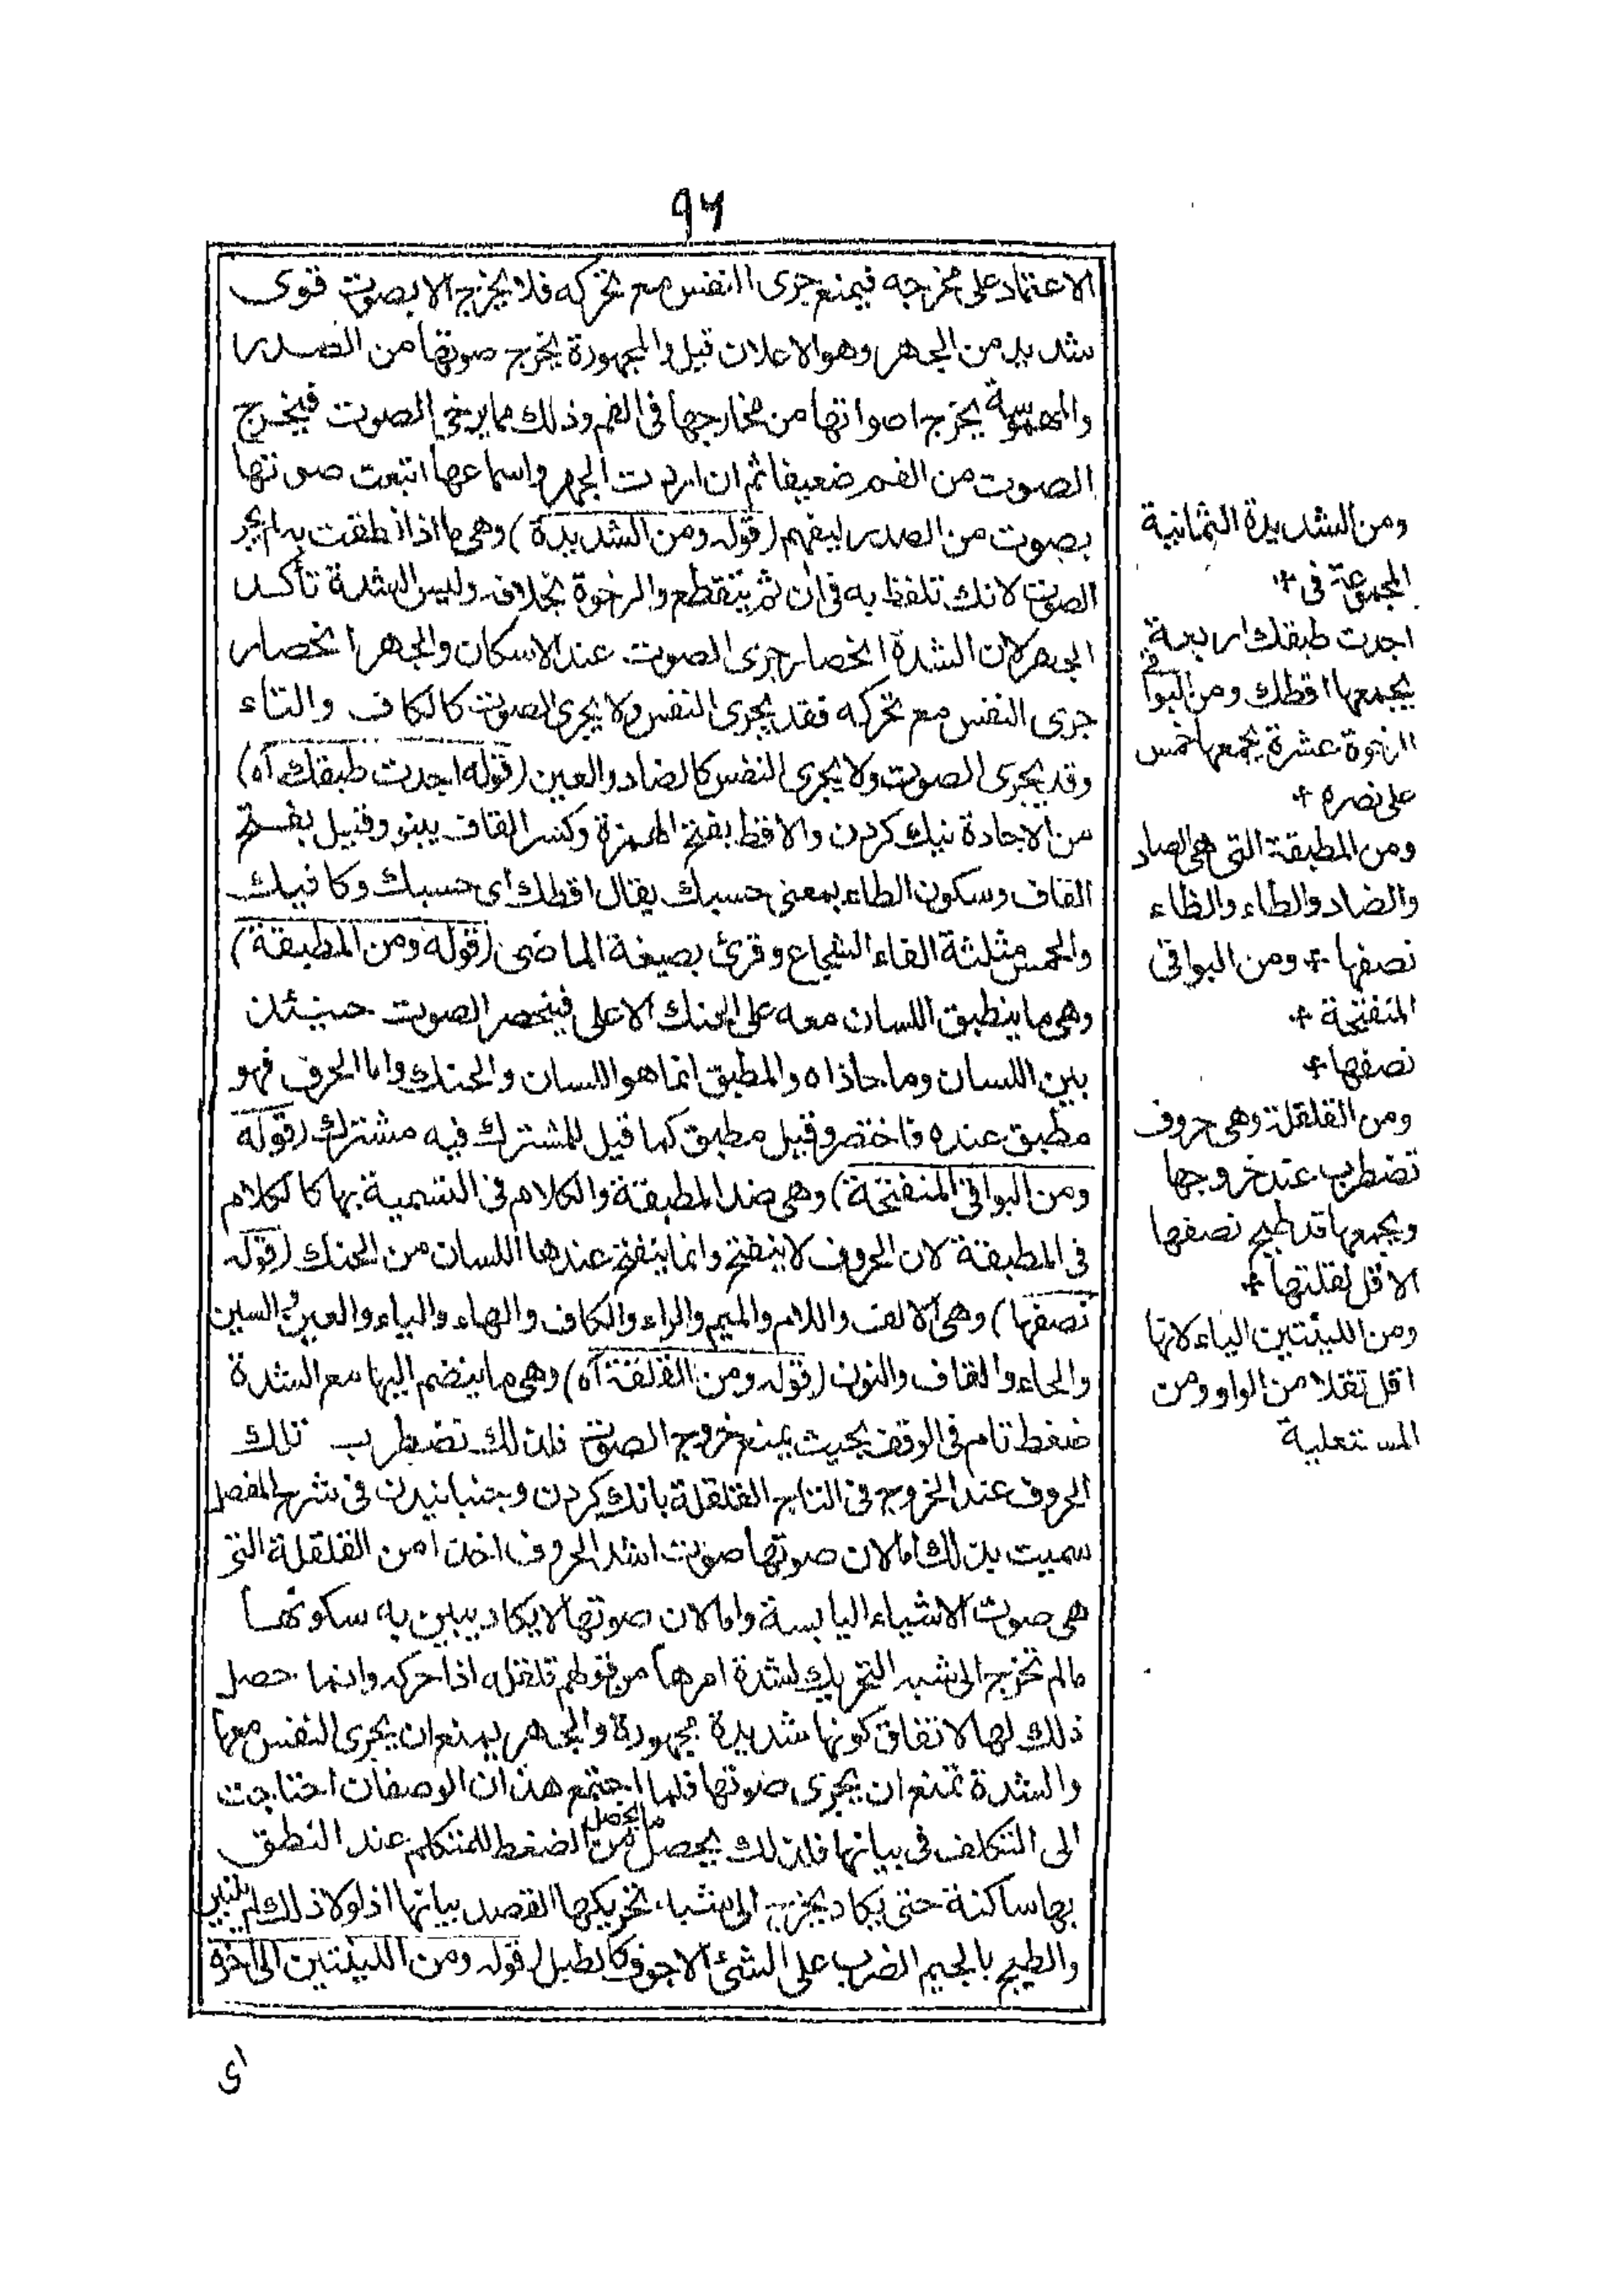 ٩٦
الاعتماد على مخرجه فيمنع جرى النفس مع تحركه فلا يخرج الا بصوت قوى
شديد من الجهر وهو الاعلان قيل والمجهورة يخرج صوتها من الصدر
والمهموسة يخرج اصواتها من مخارجها فى الفم وذلك مما يرخى الصوت فيخرج
الصوت من الفم ضعيفا ثم ان اردت الجهر واسماعها اتبعت صوتها
بصوت من الصدر ليفهم (قوله ومن الشديدة) وهى ما اذا نطقت به لم يجر
الصوت لانك تلفظ به فى ان ثم ينقطع والرخوة بخلافه وليس الشدة تأكد
الجهر لان الشدة انحصار جرى الصوت عند الاسكان والجهر انحصار
جرى النفس مع تحركه فقد يجرى النفس ولا يجرى الصوت كالكاف والتاء
وقد يجرى الصوت ولا يجرى النفس كالضاد والعين (قوله اجدت طبقك اه)
من الاجادة نيك كردن والاقط بفتح الهمزة وكسر القاف پينو وقيل بفتح
القاف وسكون الطاء بمعنى حسبك يقال اقطك اى حسبك وكافيك
والحمس مثلثة الفاء الشجاع وقرئ بصيغة الماضى (قوله ومن المطبقة)
وهى ما ينطبق اللسان معه على الحنك الاعلى فينحصر الصوت حينئذ
بين اللسان وما حاذاه والمطبق انما هو اللسان والحنك واما الحرف فهو
مطبق عنده فاختصر وقيل مطبق كما قيل للمشترك فيه مشترك (قوله
ومن البواقى المنفتحة) وهى ضد المطبقة والكلام فى التسمية بها كالكلام
فى المطبقة لان الحروف لا ينفتح وانما ينفتح عندها اللسان من الحنك (قوله
نصفها) وهى الالف واللام والميم والراء والكاف والهاء والياء والعين والسين
والحاء والقاف والنون (قوله ومن القلقة اه) وهى ما ينضم اليها مع الشدة
ضغط تام فى الوقف بحيث يمنع خروج الصوت فلذلك تضطرب تلك
الحروف عند الخروج فى التاج القلقلة بانك كردن وجنبانيدن فى شرح المفصل
سميت بذلك اما لان صوتها صوت اشد الحروف اخذا من القلقلة التى
هى صوت الاشياء اليابسة واما لان صوتها لا يكاد يبين به سكونها
مالم تخرج الى شبه التحريك لشدة امرها من قولهم قلقله اذا حركه وانما حصل
ذلك لها لاتفاق كونها شديدة مجهورة والجهر يمنع ان يجرى النفس معها
والشدة تمنع ان يجرى صوتها فلما اجتمع هذان الوصفان احتاجت
الى التكلف فى بيانها فلذلك يحصل ما يحصل من الضغط للمتكلم عند النطق
بها ساكنة حتى يكاد يخرج الى شبه تحريكها لقصد بيانها اذ لولا ذلك لم يتبين
والطبج بالجيم الضرب على الشئ الاجوف كالطبل (قوله ومن اللينتين الى اخره
ومن الشديدة الثمانية
المجموعة فى +
اجدت طبقك اربعة
يجمعها اقطك ومن البواقى
الرخوة عشرة يجمعها حمس
على نصره +
ومن المطبقة التى هى الصاد
والضاد والطاء والظاء
نصفها + ومن البواقى
المنفتحة +
نصفها +
ومن القلقلة وهى حروف
تضطرب عند خروجها
ويجمعها قد طبج نصفها
الاقل لقلتها +
ومن اللينتين الياء لانها
اقل ثقلا من الواو ومن
المستعلية